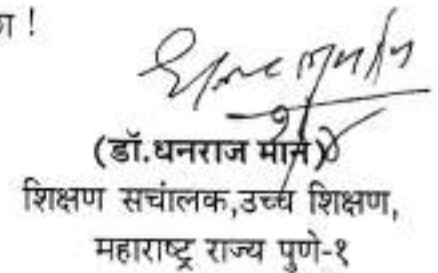 !
(डॉ.धनराज माने)
शिक्षण सचांलक,उच्च शिक्षण,
महाराष्ट्र राज्य पुणे-१